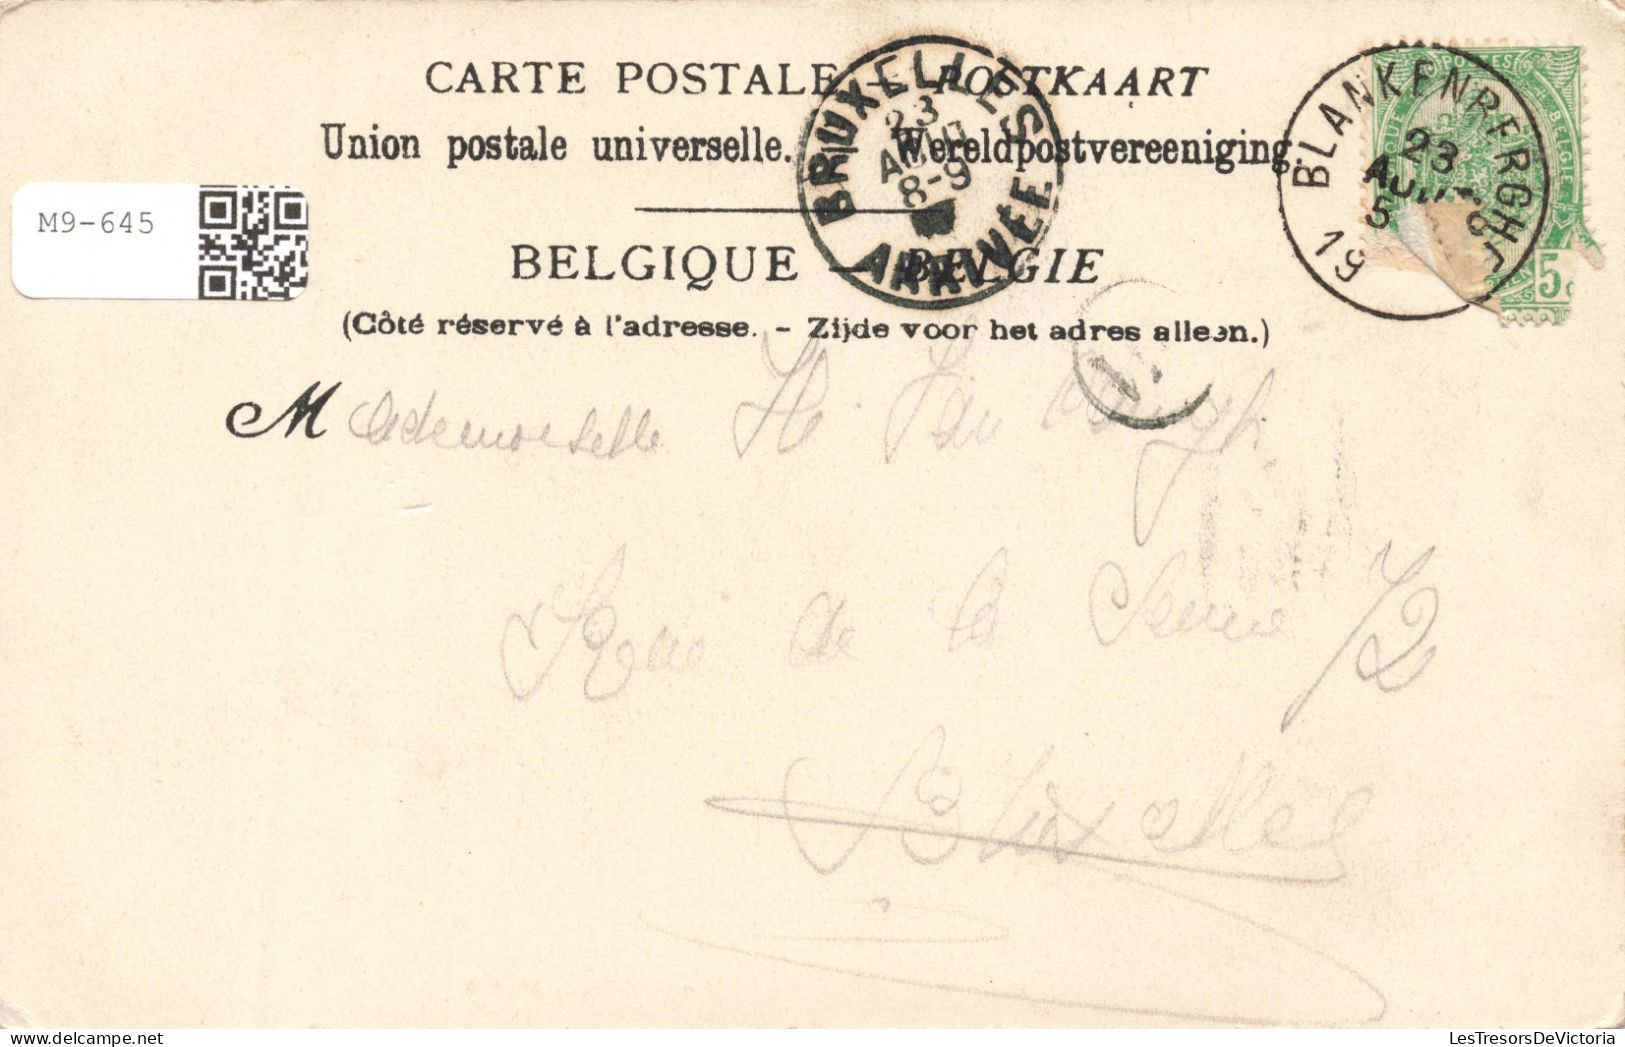 CARTE POSTALE — POSTKAART
Union postale universelle. — Wereldpostvereeniging.
M9-645
BELGIQUE — BELGIE
(Côté réservé à l'adresse. - Zijde voor het adres alleen.)
BRUXELLES
23
AOUT
8-9
ARRIVÉE
BLANKENBERGHE
23
AOUT
5
19
POSTES
BELGIE
5
Mademoiselle H Van
Rue de la Senne 72
Bruxelles
LesTresorsDeVictoria